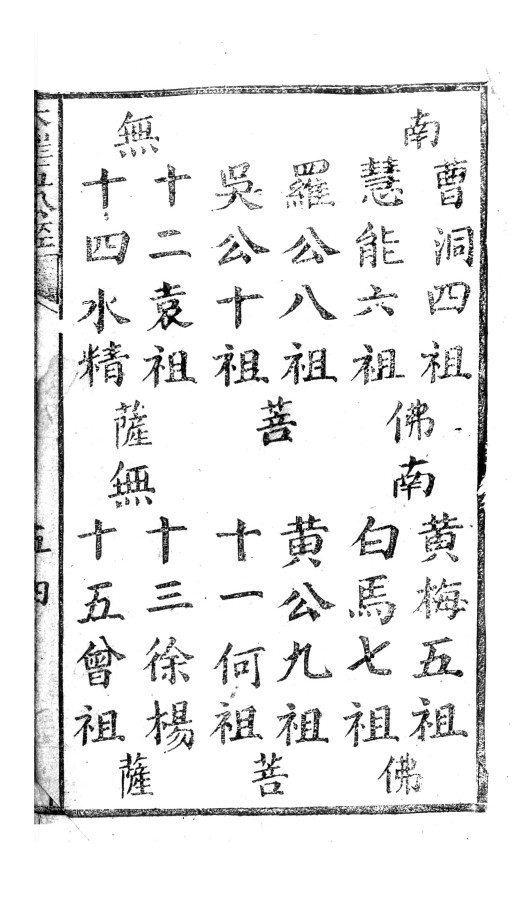 南無
曹洞四祖
慧能六祖
羅公八祖
吳公十祖
十二袁祖
十四水精
佛菩薩
南無
黄梅五祖
白馬七祖
黄公九祖
十一何祖
十三徐楊
十五曾祖
佛菩薩